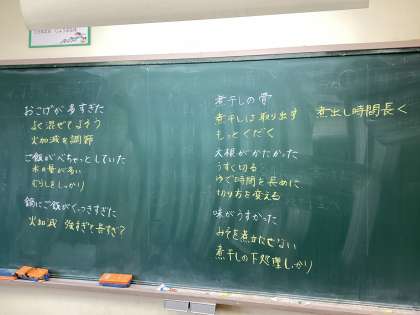 おこげが多すぎた
よく混ぜてよそう
火加減を調節
ご飯がべちゃっとしていた
水の量が多い
むらしをしっかり
鍋にご飯がくっつきすぎた
火加減 強すぎて長すぎ?
煮干しの骨
煮干しは取り出す
もっとくだく
煮出し時間長く
大根がかたかった
うすく切る
ゆで時間を長めに
切り方を変える
味がうすかった
みそを煮立たせない
煮干しの下処理しっかり